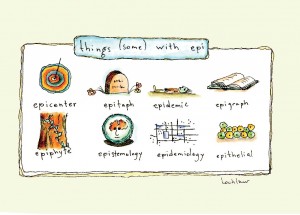 things (some) with epi
epicenter epitaph epidemic epigraph
epiphyte epistemology epidemiology epithelial